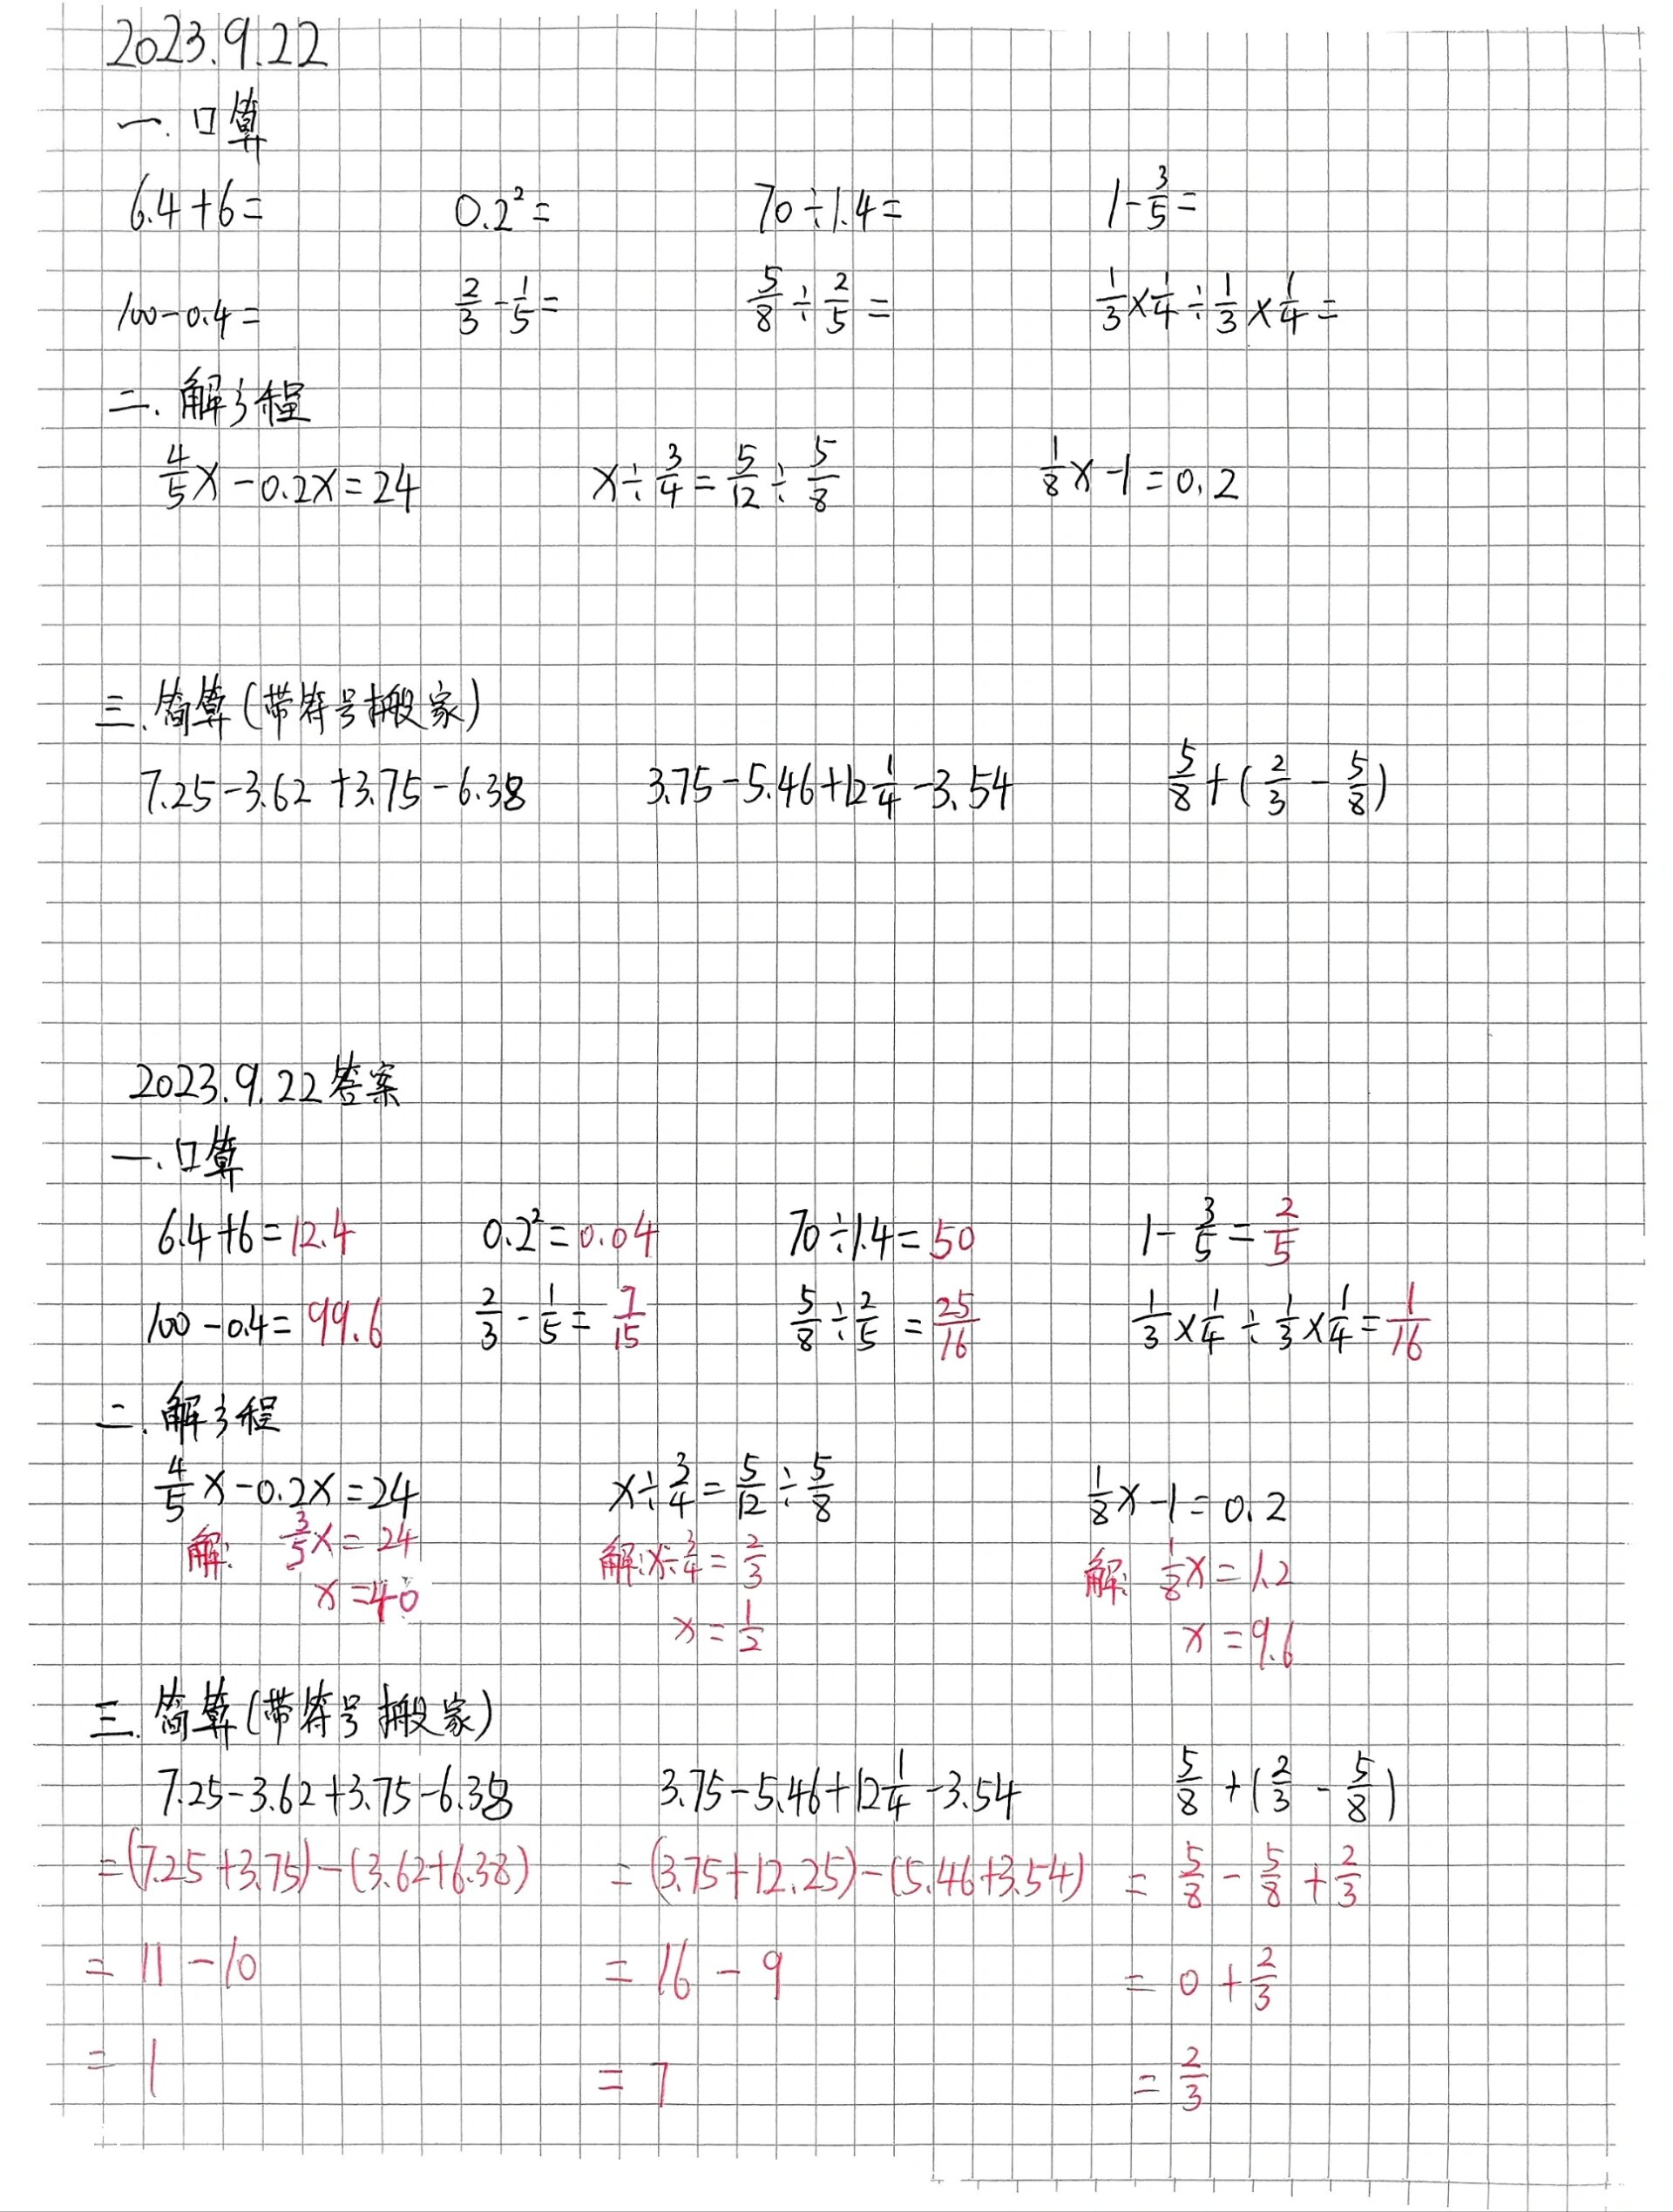 2023.9.22
一.口算
6.4+6= 0.2²= 70÷1.4= 1-3/5=
100-0.4= 2/3-1/5= 5/8÷2/5= 1/3×1/4÷1/3×1/4=
二.解方程
4/5x-0.2x=24 x÷3/4=5/12÷5/8 1/8x-1=0.2
三.简算(带符号搬家)
7.25-3.62+3.75-6.38 3.75-5.46+12 1/4-3.54 5/8+(2/3-5/8)
2023.9.22答案
一.口算
6.4+6=12.4 0.2²=0.04 70÷1.4=50 1-3/5=2/5
100-0.4=99.6 2/3-1/5=7/15 5/8÷2/5=25/16 1/3×1/4÷1/3×1/4=1/16
二.解方程
4/5x-0.2x=24 x÷3/4=5/12÷5/8 1/8x-1=0.2
解: 3/5x=24 解:x÷3/4=2/3 解: 1/8x=1.2
x=40 x=1/2 x=9.6
三.简算(带符号搬家)
7.25-3.62+3.75-6.38 3.75-5.46+12 1/4-3.54 5/8+(2/3-5/8)
=(7.25+3.75)-(3.62+6.38) =(3.75+12.25)-(5.46+3.54) =5/8-5/8+2/3
=11-10 =16-9 =0+2/3
=1 =7 =2/3